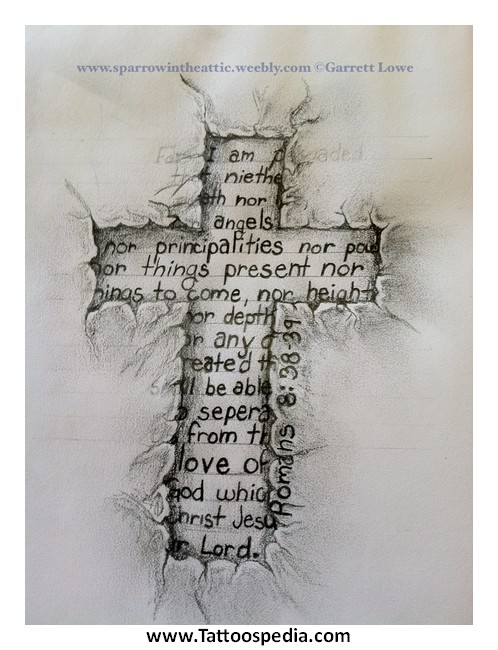 www.sparrowintheattic.weebly.com ©Garrett Lowe
For I am p uaded
that niethe
eth nor
angels
nor principalities nor pow
nor things present nor
hings to come, nor height
nor depth
or any o
reated th
shall be able
o sepera
from th
love of
god whic
Christ Jesu
r Lord.
Romans 8:38-39
www.Tattoospedia.com